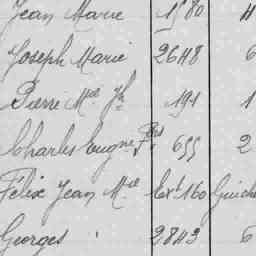 Jean Marie 1580 4
Joseph Marie 2648 6
Pierre Mie Jh 191 1
Charles Eugne Fois 655 2
Félix Jean Mie Cert 160 Guich
Georges 2843 6